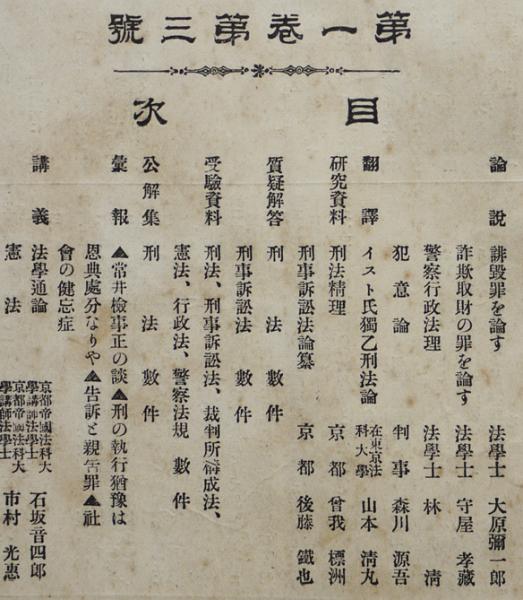 第一卷第三號
目次
論説 誹毀罪を論す 法學士 大原彌一郎
詐欺取財の罪を論す 法學士 守屋孝藏
警察行政法理 法學士 林清
犯意論 判事 森川源吾
翻譯 イスト氏獨乙刑法論 在東京法科大學 山本清丸
研究資料 刑法精理 京都 曾我標洲
刑事訴訟法論纂 京都 後藤鐵也
質疑解答 刑法數件
刑事訴訟法數件
受驗資料 刑法、刑事訴訟法、裁判所構成法、
憲法、行政法、警察法規數件
公解集 刑法數件
彙報 ▲常井檢事正の談▲刑の執行猶豫は
恩典處分なりや▲告訴と親告罪▲社
會の健忘症
講義 法學通論 京都帝國法科大學講師法學士 石坂音四郎
憲法 京都帝國法科大學講師法學士 市村光惠